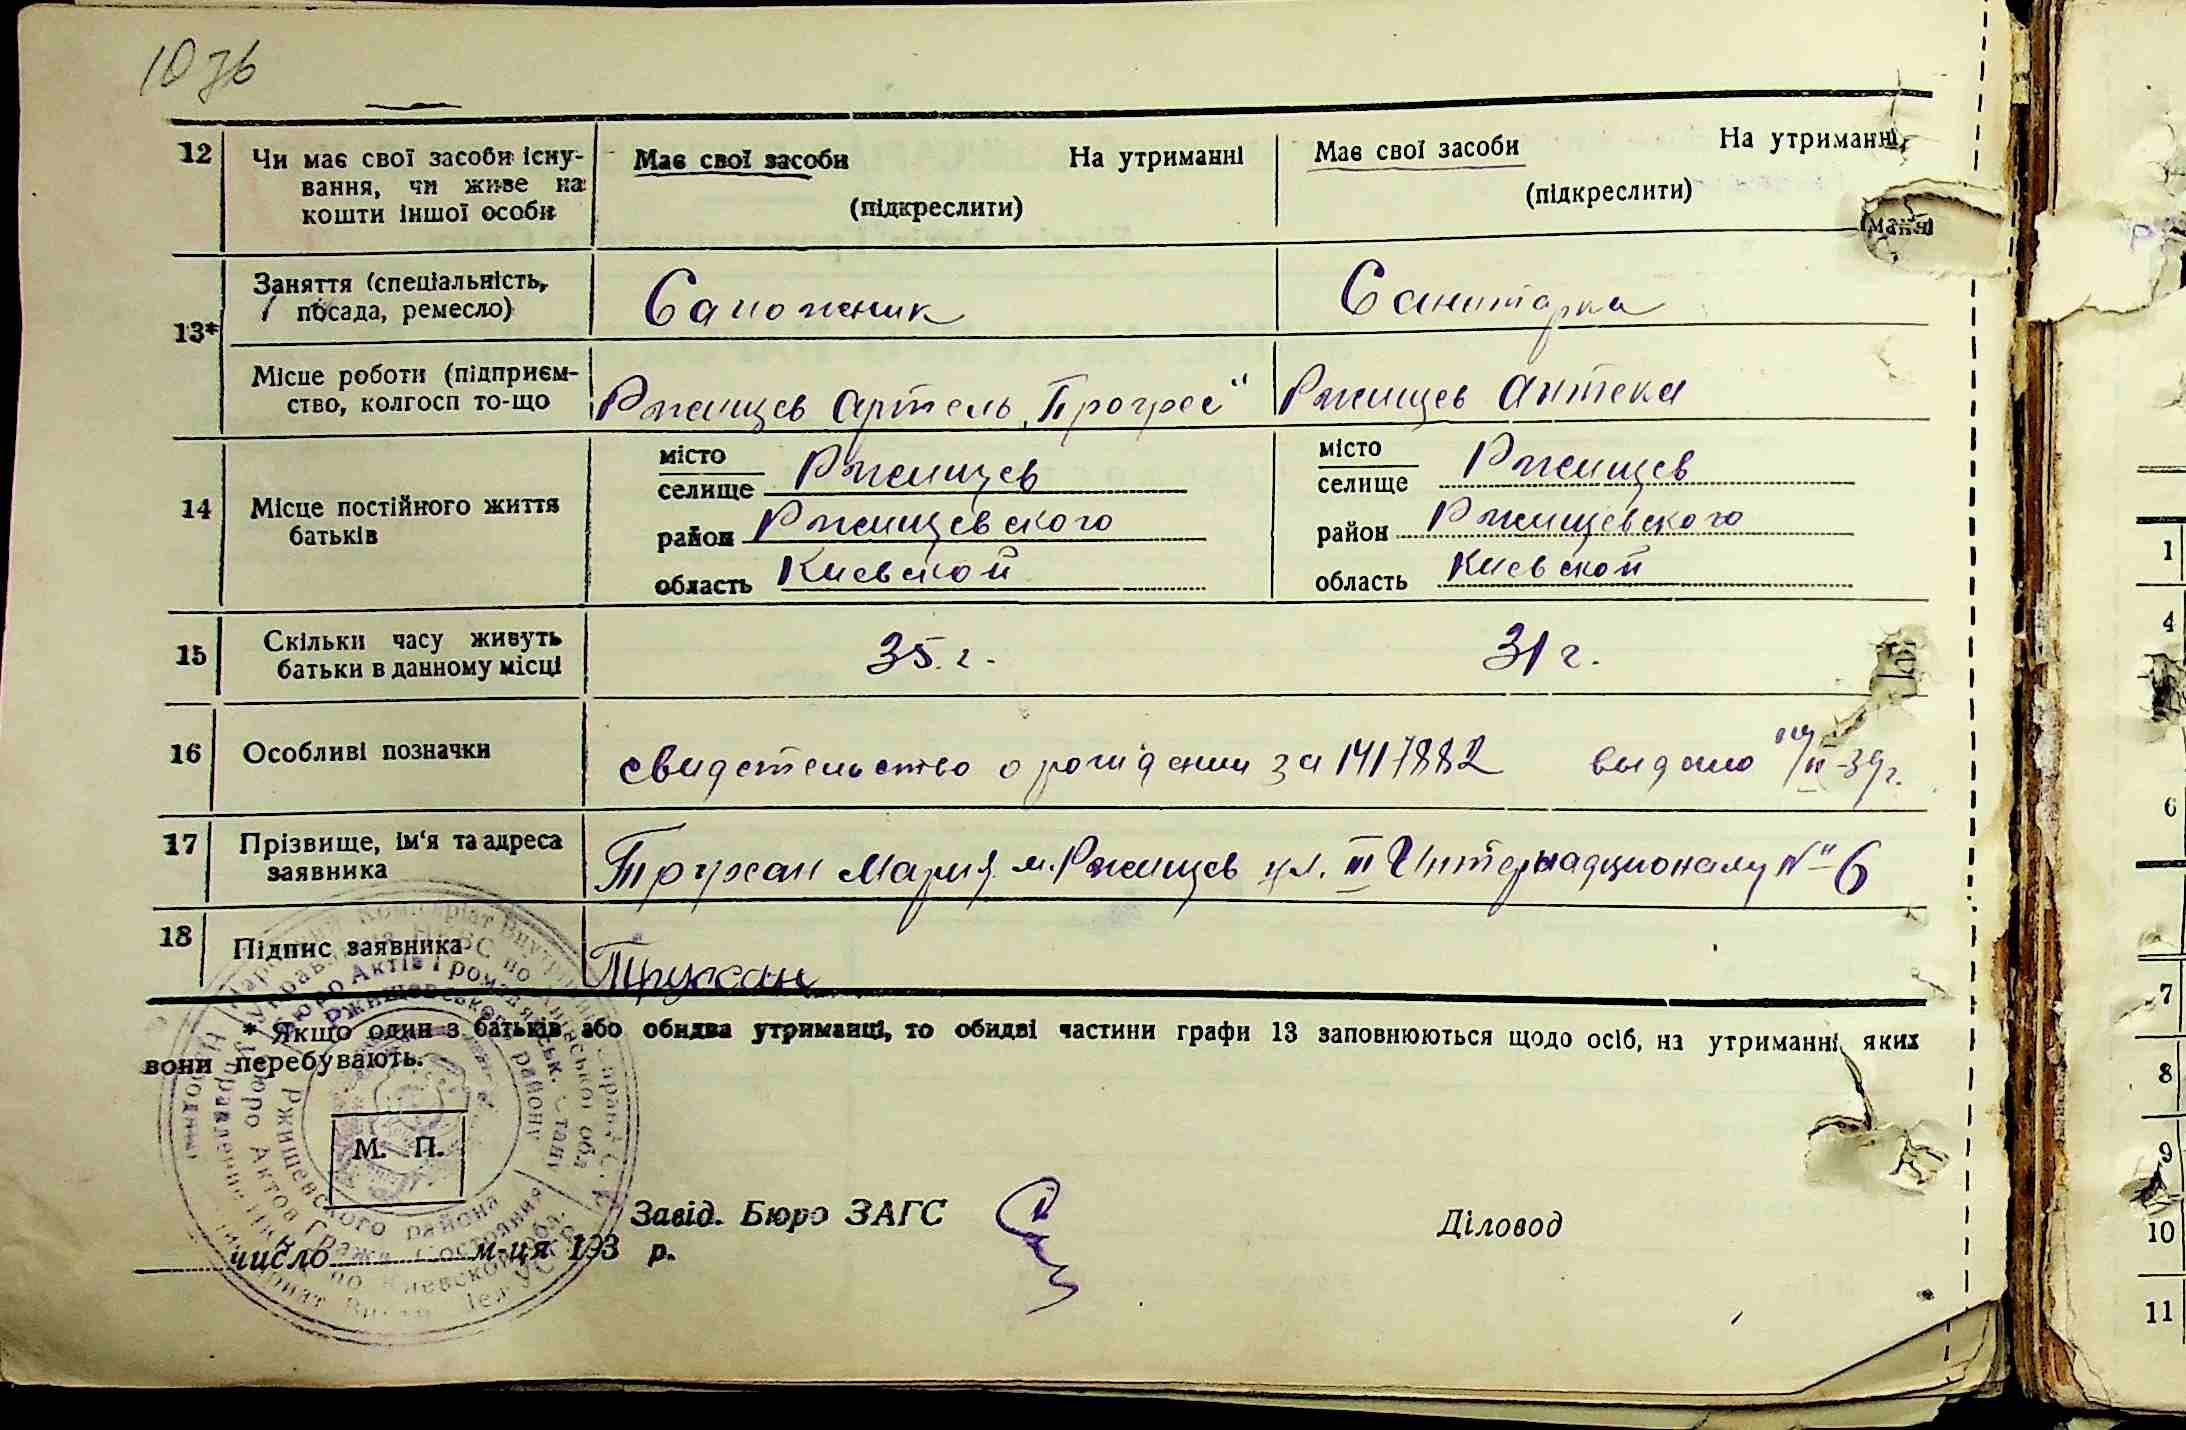 107б
12 Чи має свої засоби існу-
вання, чи живе на
кошти іншої особи
Має свої засоби На утриманні
(підкреслити)
Має свої засоби На утриманні
(підкреслити)
13* Заняття (спеціальність,
посада, ремесло)
Сапожник
Санитарка
Місце роботи (підприєм-
ство, колгосп то-що
Ржищев Артель „Прогрес"
Ржищев Аптека
14 Місце постійного життя
батьків
місто
селище Ржищев
район Ржищевского
область Киевской
місто
селище Ржищев
район Ржищевского
область Киевской
15 Скільки часу живуть
батьки в данному місці
35 г.
31 г.
16 Особливі позначки
свидетельство о рождении за 1417882 выдано 39 г.
17 Прізвище, ім'я та адреса
заявника
Трухан Мария м. Ржищев ул. III Интернационалу № 6
18 Підпис заявника
Трухан
* Якщо один з батьків або обидва утриманці, то обидві частини графи 13 заповнюються щодо осіб, на утриманні яких
вони перебувають.
М. П.
Завід. Бюро ЗАГС
Діловод
число м-ця 193 р.
Бюро Актів Громадянськ. Стану
Ржищевського району
Бюро Актов Гражд. Состояния
Ржищевского района
1
4
6
7
8
9
10
11